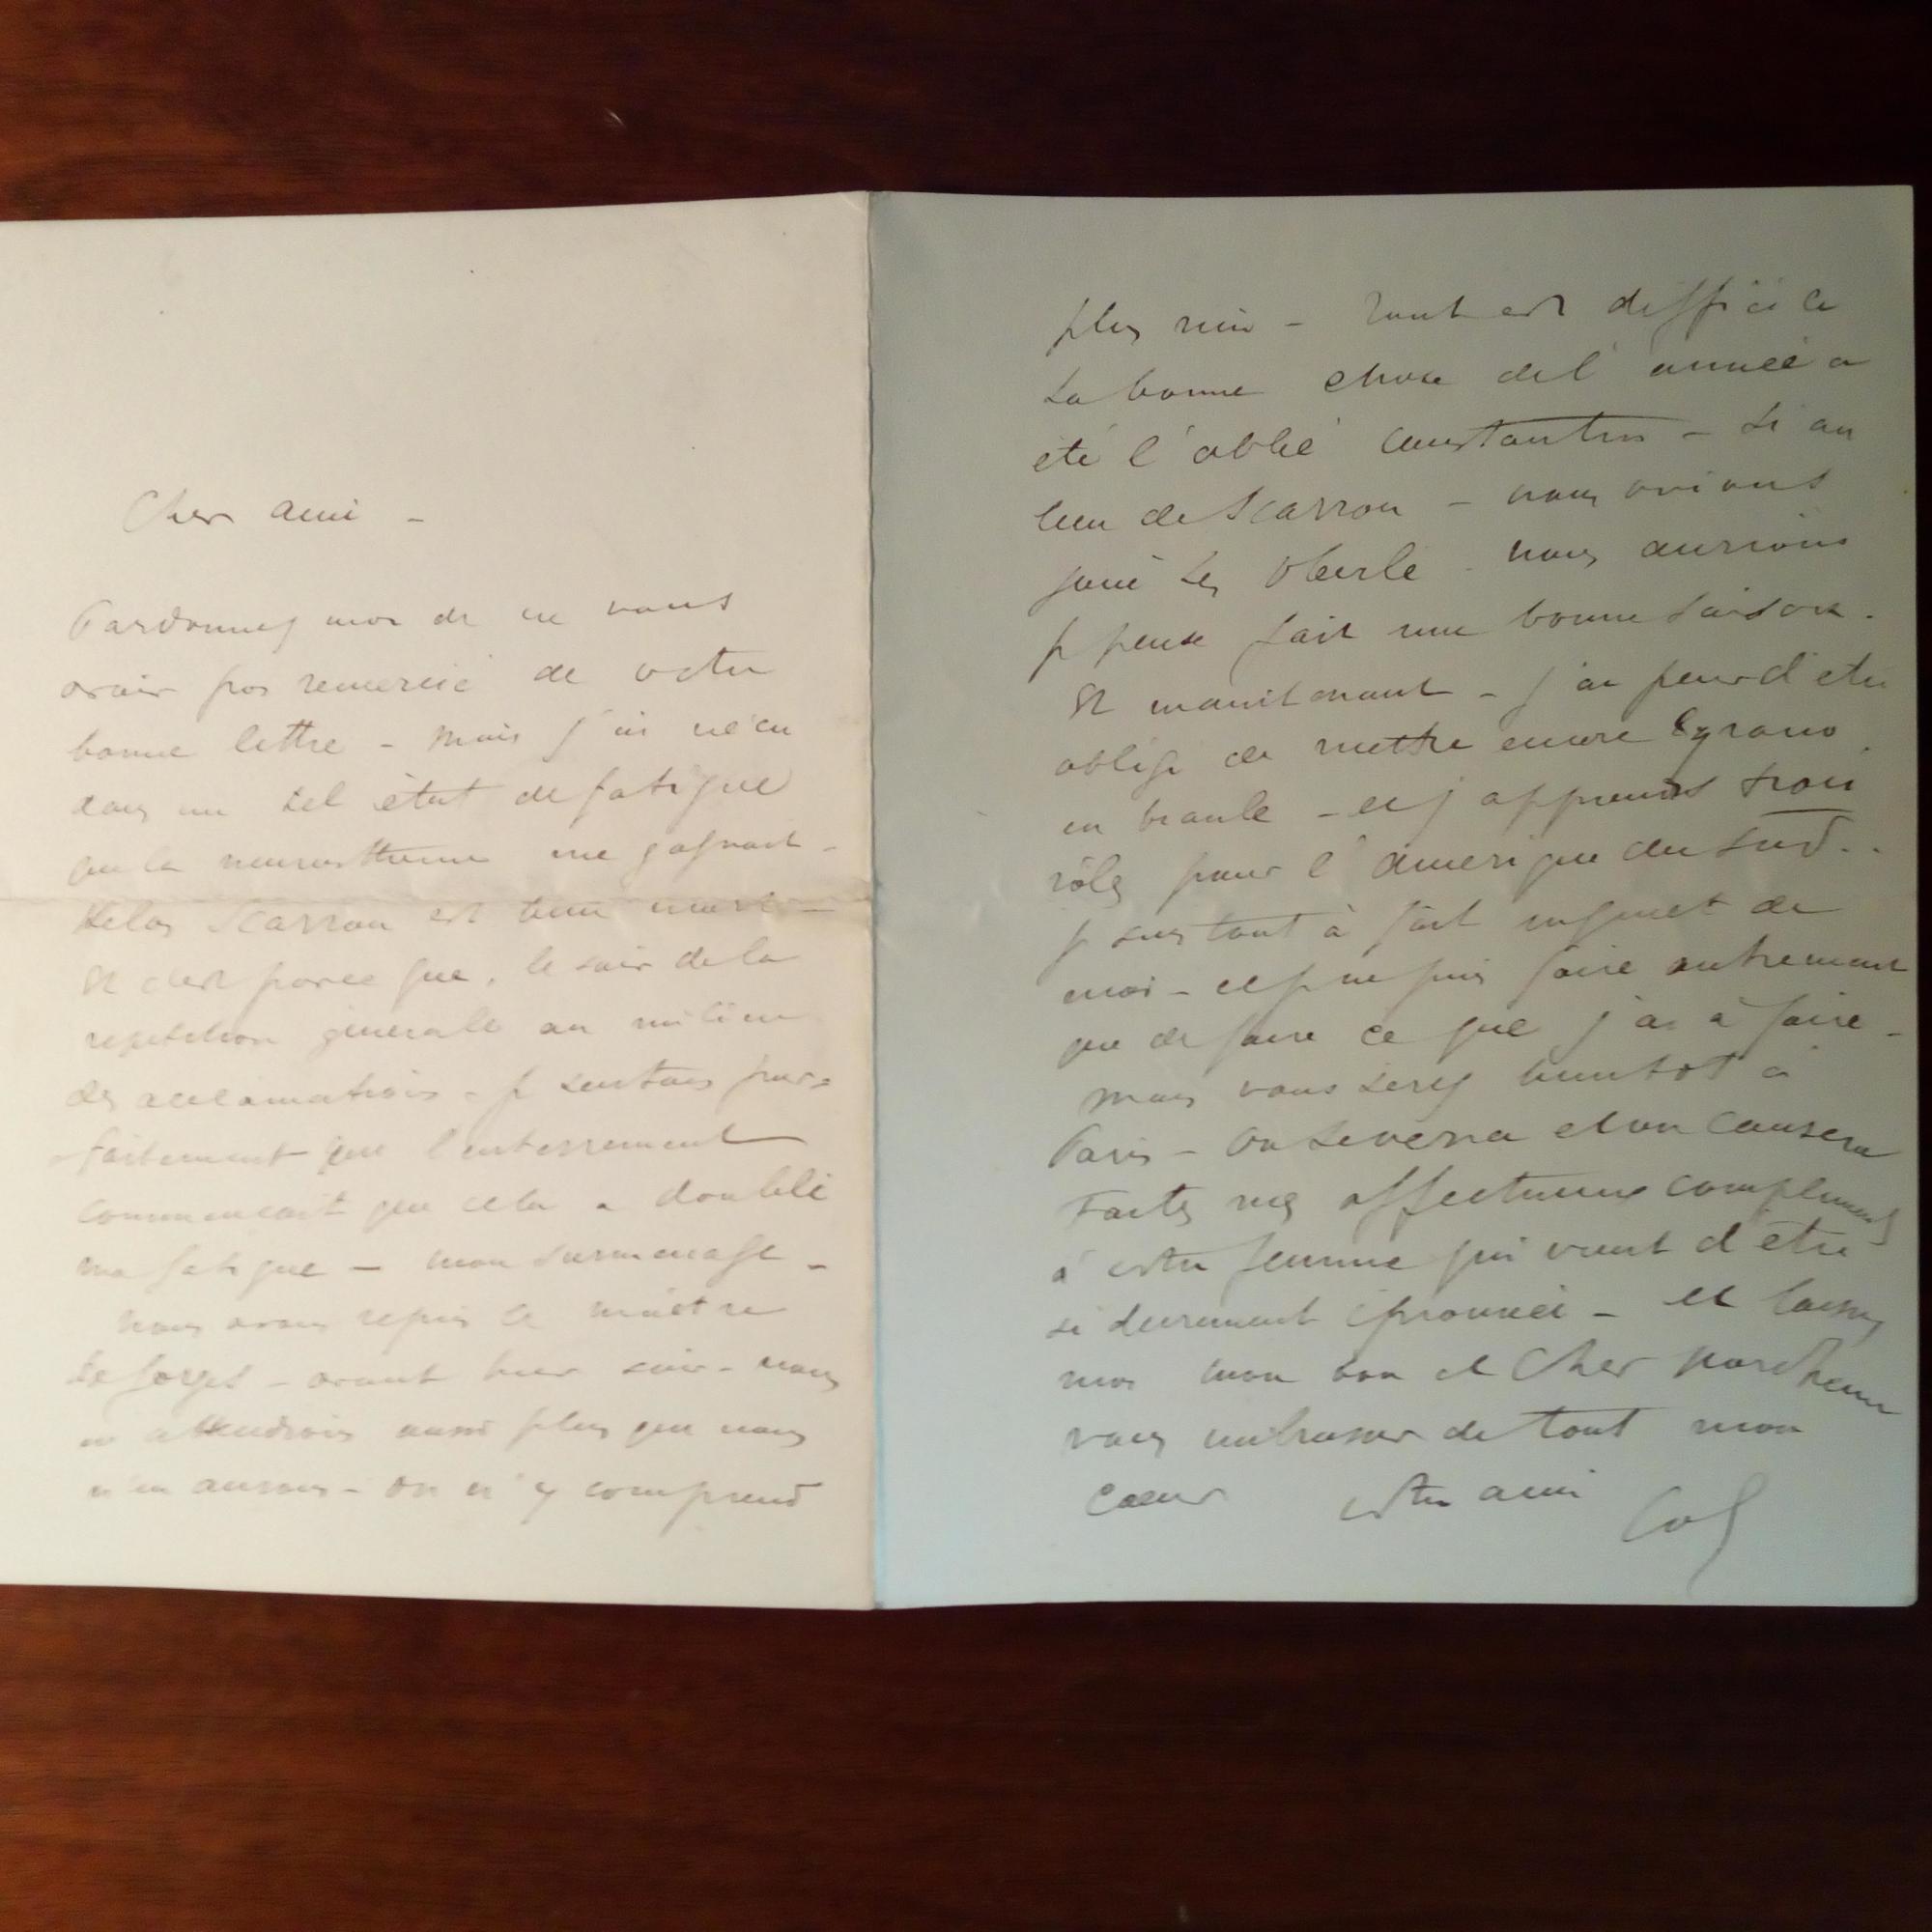 Cher ami -
Pardonnez moi de ne vous
avoir pas remercié de votre
bonne lettre - mais j'ai vécu
dans un tel état de fatigue
que la neurasthenie me gagnait -
Helas Scarron est bien mort -
Et c'est parce que, le soir de la
repetition generale au milieu
des acclamations - je sentais par=
faitement que l'enterrement
commencait que cela a doublé
ma fatigue - mon surmenage -
nous avons repris le maître
de forges - avant hier soir - nous
en attendions aussi plus que nous
n'en aurons - on n'y comprend
plus rien - tout est difficile
La bonne chose de l'année a
été l'abbé Constantin - Si au
lieu de Scarron - nous avions
joué Les Oberlé - nous aurions
je pense fait une bonne saison.
Et maintenant - j'ai peur d'etre
obligé de mettre encore Cyrano
en branle - et j'apprends trois
rôles pour l'Amerique du Sud..
Je suis tout à fait inquiet de
moi - et je ne puis faire autrement
que de faire ce que j'ai à faire -
Mais vous serez bientot à
Paris - On se verra et on causera
Faites mes affectueux compliments
à votre femme qui vient d'être
si durement éprouvée - et laissez
moi mon bon et cher
vous embrasser de tout mon
coeur votre ami Coq